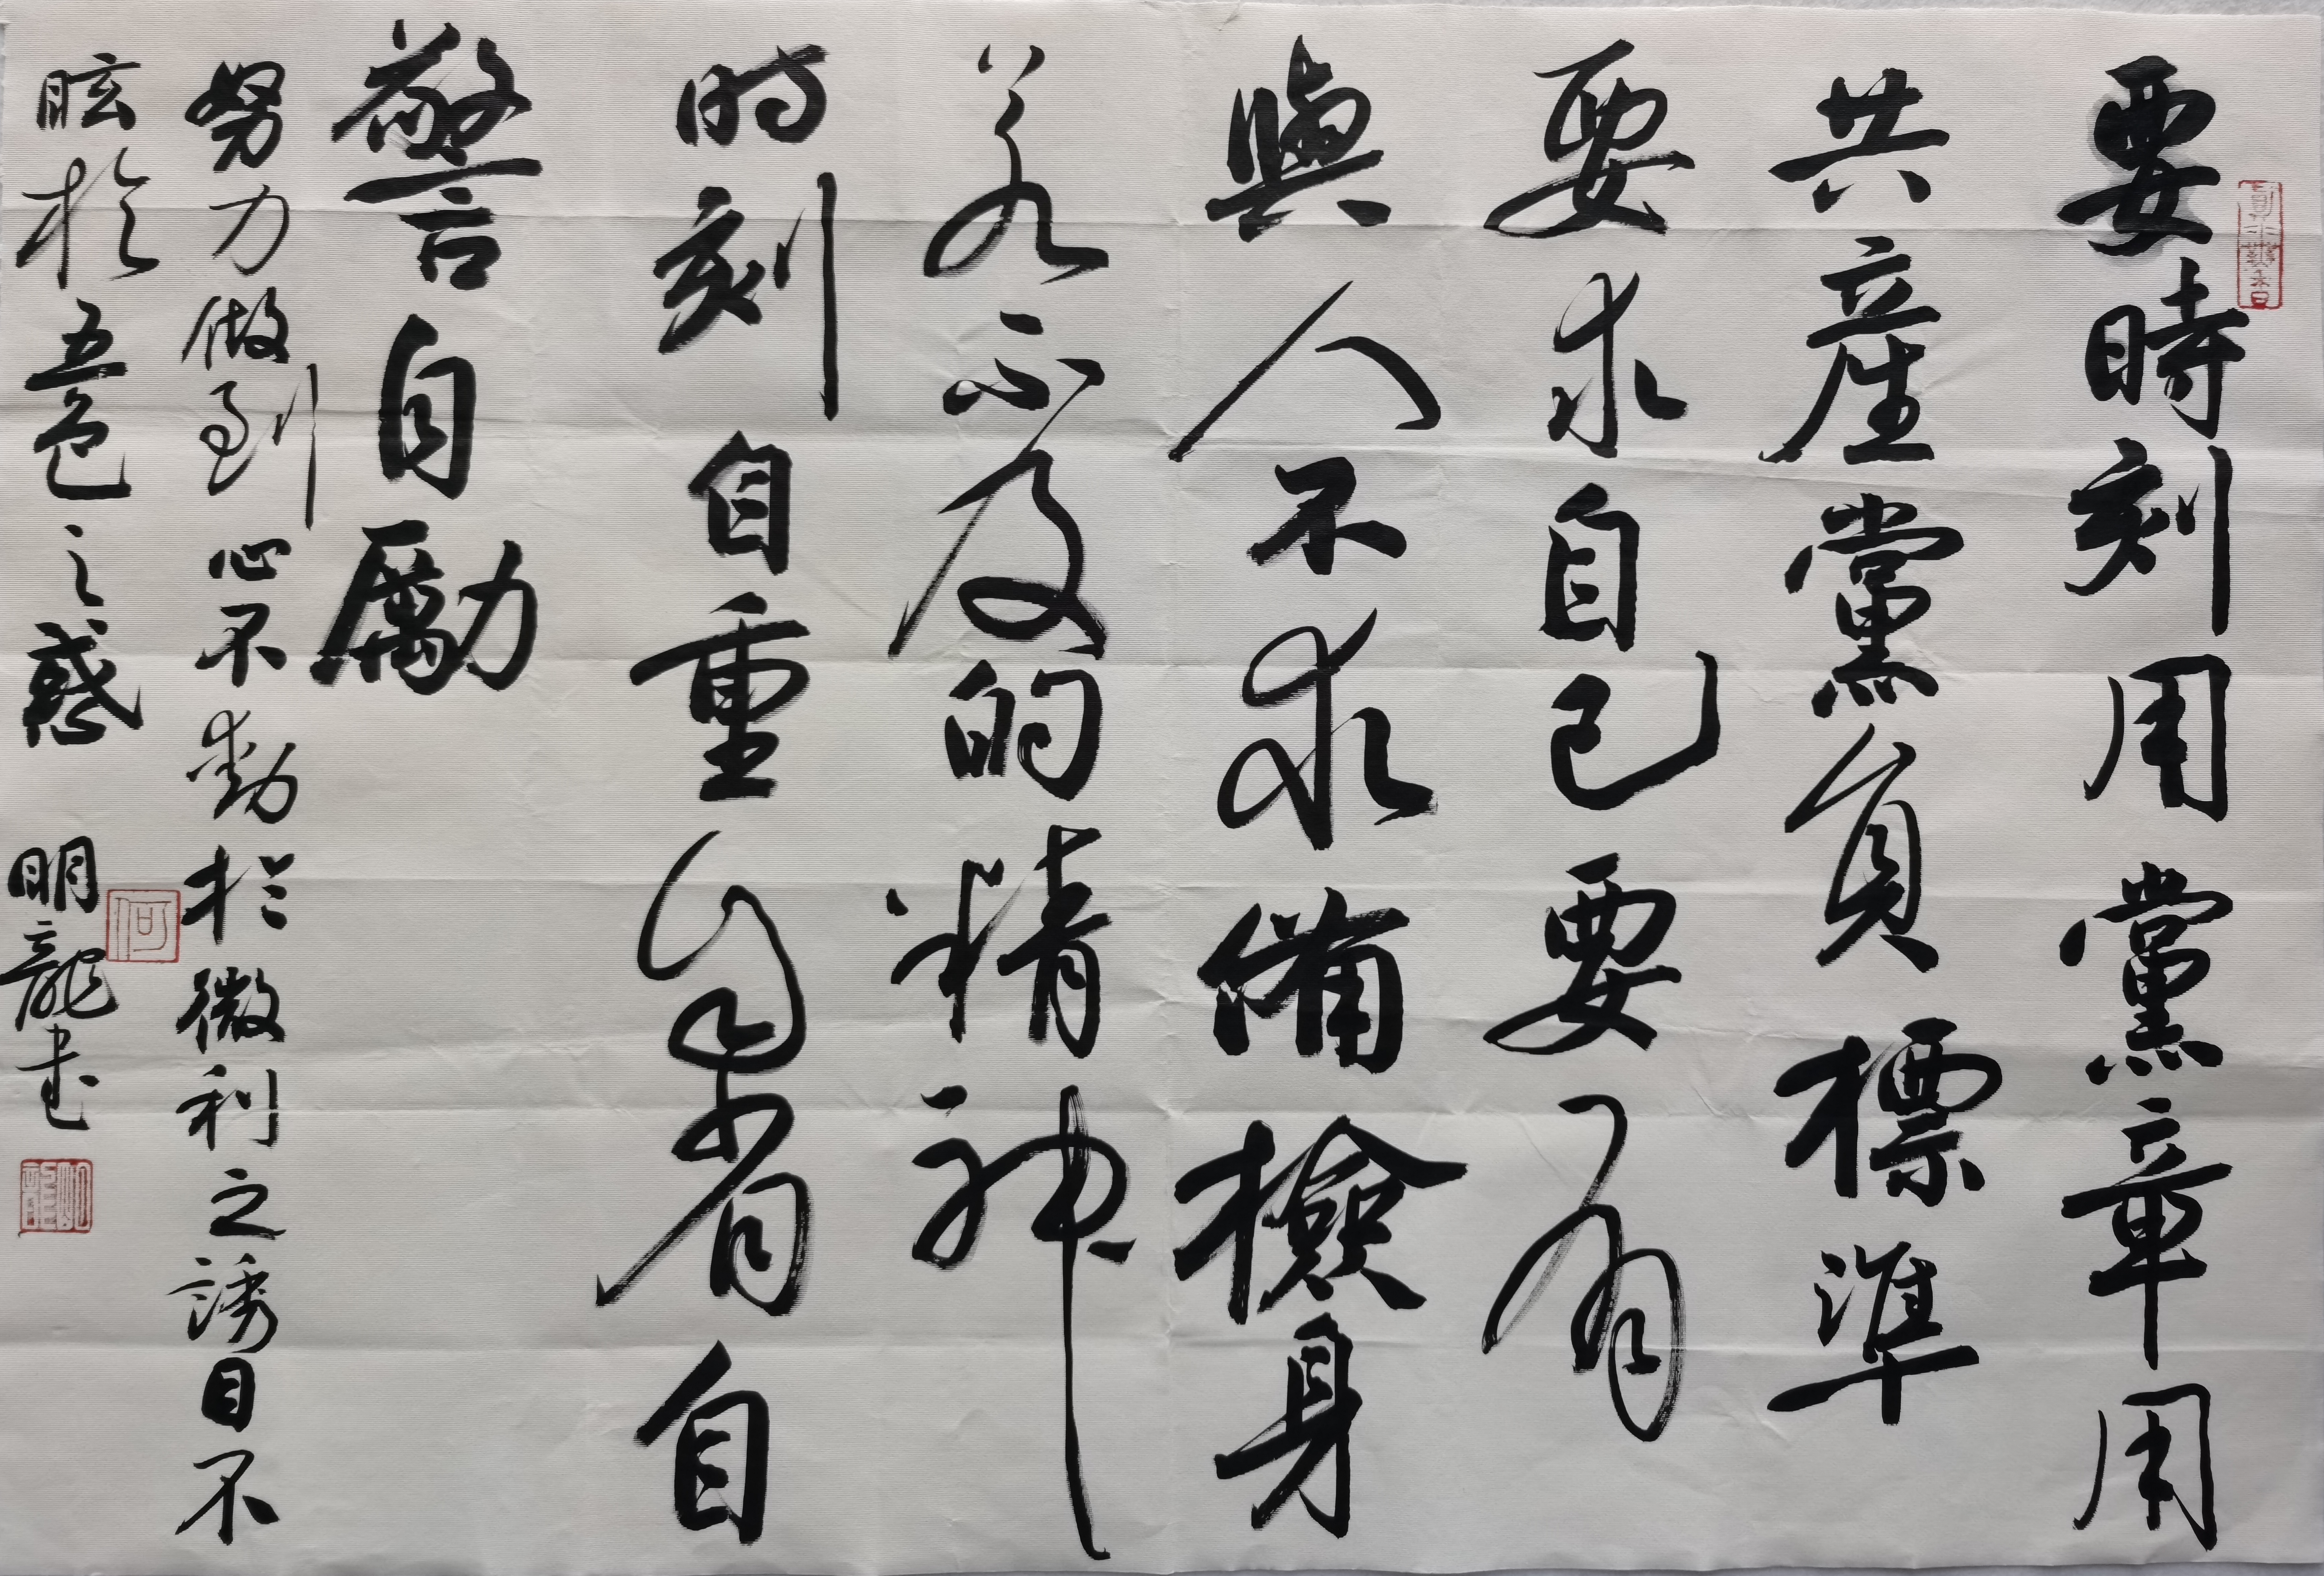 要時刻用黨章用
共産黨員標準
要求自己要有
與人不求備檢身
若不及的精神
时刻自重自省自
警自勵
努力做到心不動於微利之誘目不
眩於五色之惑
明龍書
何
明龍